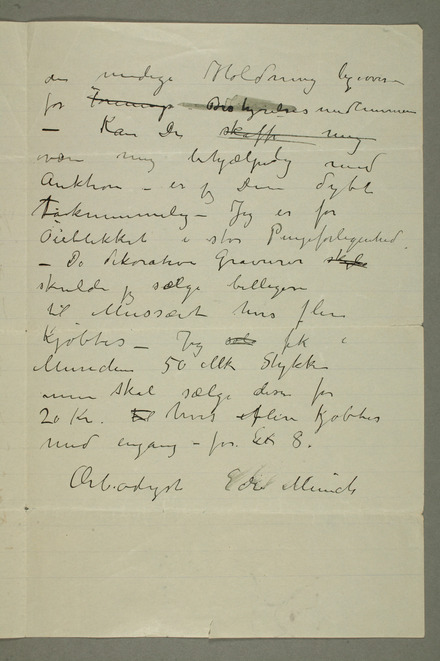 den uædige Holdning ligeover
for Forenings Bestyrelsesmedlemmer
– Kan De skaffe mig
være mig behjælpelig med
Auktion – er jeg Dem dybt
taknemmelig – Jeg er for
Øieblikket i stor Pengeforlegenhed.
– De dekorative Gravurer skulde
skulde jeg sælge billigere
til Musæet hvis flere
Kjøbtes – Jeg fik i
München 50 Mk Stykket
men skal sælge disse for
20 Kr. hvis flere kjøbtes
med engang – for 8.
Ærbødigst Edv Munch